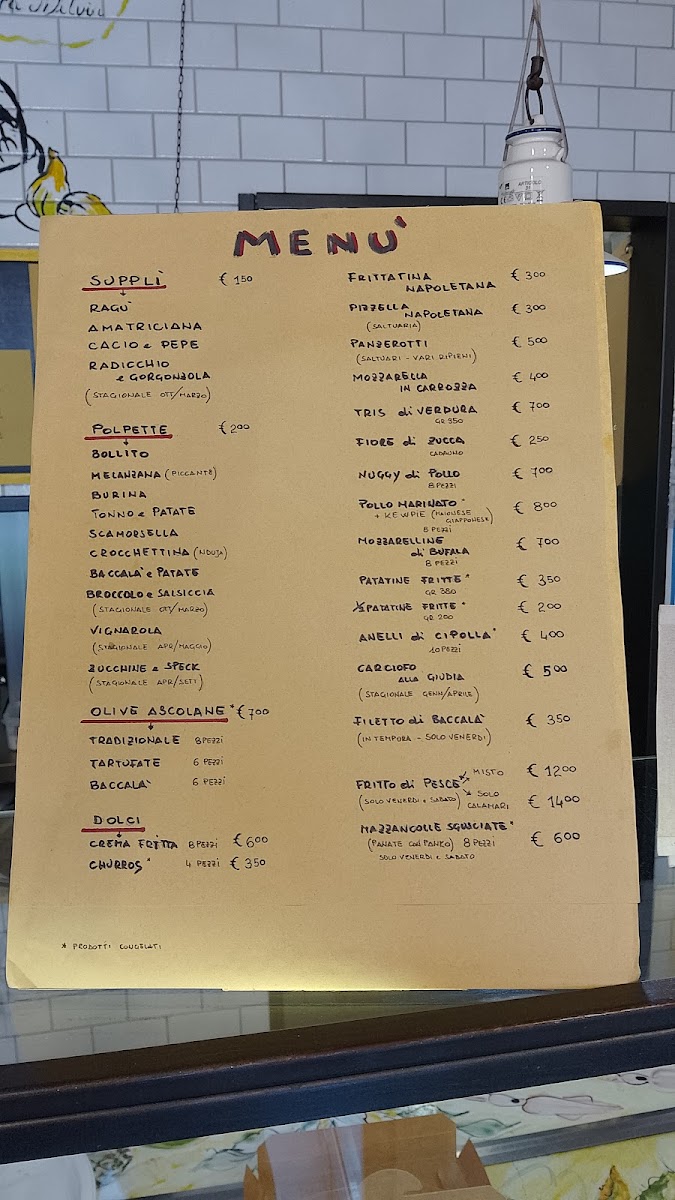 MENU'
SUPPLÌ € 1,50
RAGU'
AMATRICIANA
CACIO e PEPE
RADICCHIO
e GORGONZOLA
(STAGIONALE OTT/MARZO)
POLPETTE € 2,00
BOLLITO
MELANZANA (PICCANTE)
BURINA
TONNO e PATATE
SCAMORSELLA
CROCCHETTINA (NDUJA)
BACCALA' e PATATE
BROCCOLO e SALSICCIA
(STAGIONALE OTT/MARZO)
VIGNAROLA
(STAGIONALE APR/MAGGIO)
ZUCCHINE e SPECK
(STAGIONALE APR/SETT)
OLIVE ASCOLANE * € 7,00
TRADIZIONALE 8 PEZZI
TARTUFATE 6 PEZZI
BACCALA' 6 PEZZI
DOLCI
CREMA FRITTA 8 PEZZI € 6,00
CHURROS * 4 PEZZI € 3,50
* PRODOTTI CONGELATI
FRITTATINA
NAPOLETANA € 3,00
PIZZELLA
NAPOLETANA € 3,00
(SALTUARIA)
PANZEROTTI € 5,00
(SALTUARI - VARI RIPIENI)
MOZZARELLA
IN CARROZZA € 4,00
TRIS di VERDURA € 7,00
GR 350
FIORE di ZUCCA € 2,50
CADAUNO
NUGGY di POLLO € 7,00
8 PEZZI
POLLO MARINATO * € 8,00
+ KEWPIE (MAIONESE
GIAPPONESE)
8 PEZZI
MOZZARELLINE
di BUFALA € 7,00
8 PEZZI
PATATINE FRITTE * € 3,50
GR 380
½ PATATINE FRITTE * € 2,00
GR 200
ANELLI di CIPOLLA * € 4,00
10 PEZZI
CARCIOFO
ALLA GIUDIA € 5,00
(STAGIONALE GENN/APRILE)
FILETTO di BACCALA' € 3,50
(IN TEMPURA - SOLO VENERDI)
FRITTO di PESCE * MISTO € 12,00
(SOLO VENERDI e SABATO) SOLO
CALAMARI € 14,00
MAZZANCOLLE SGUSCIATE * € 6,00
(PANATE con PANKO) 8 PEZZI
SOLO VENERDI e SABATO